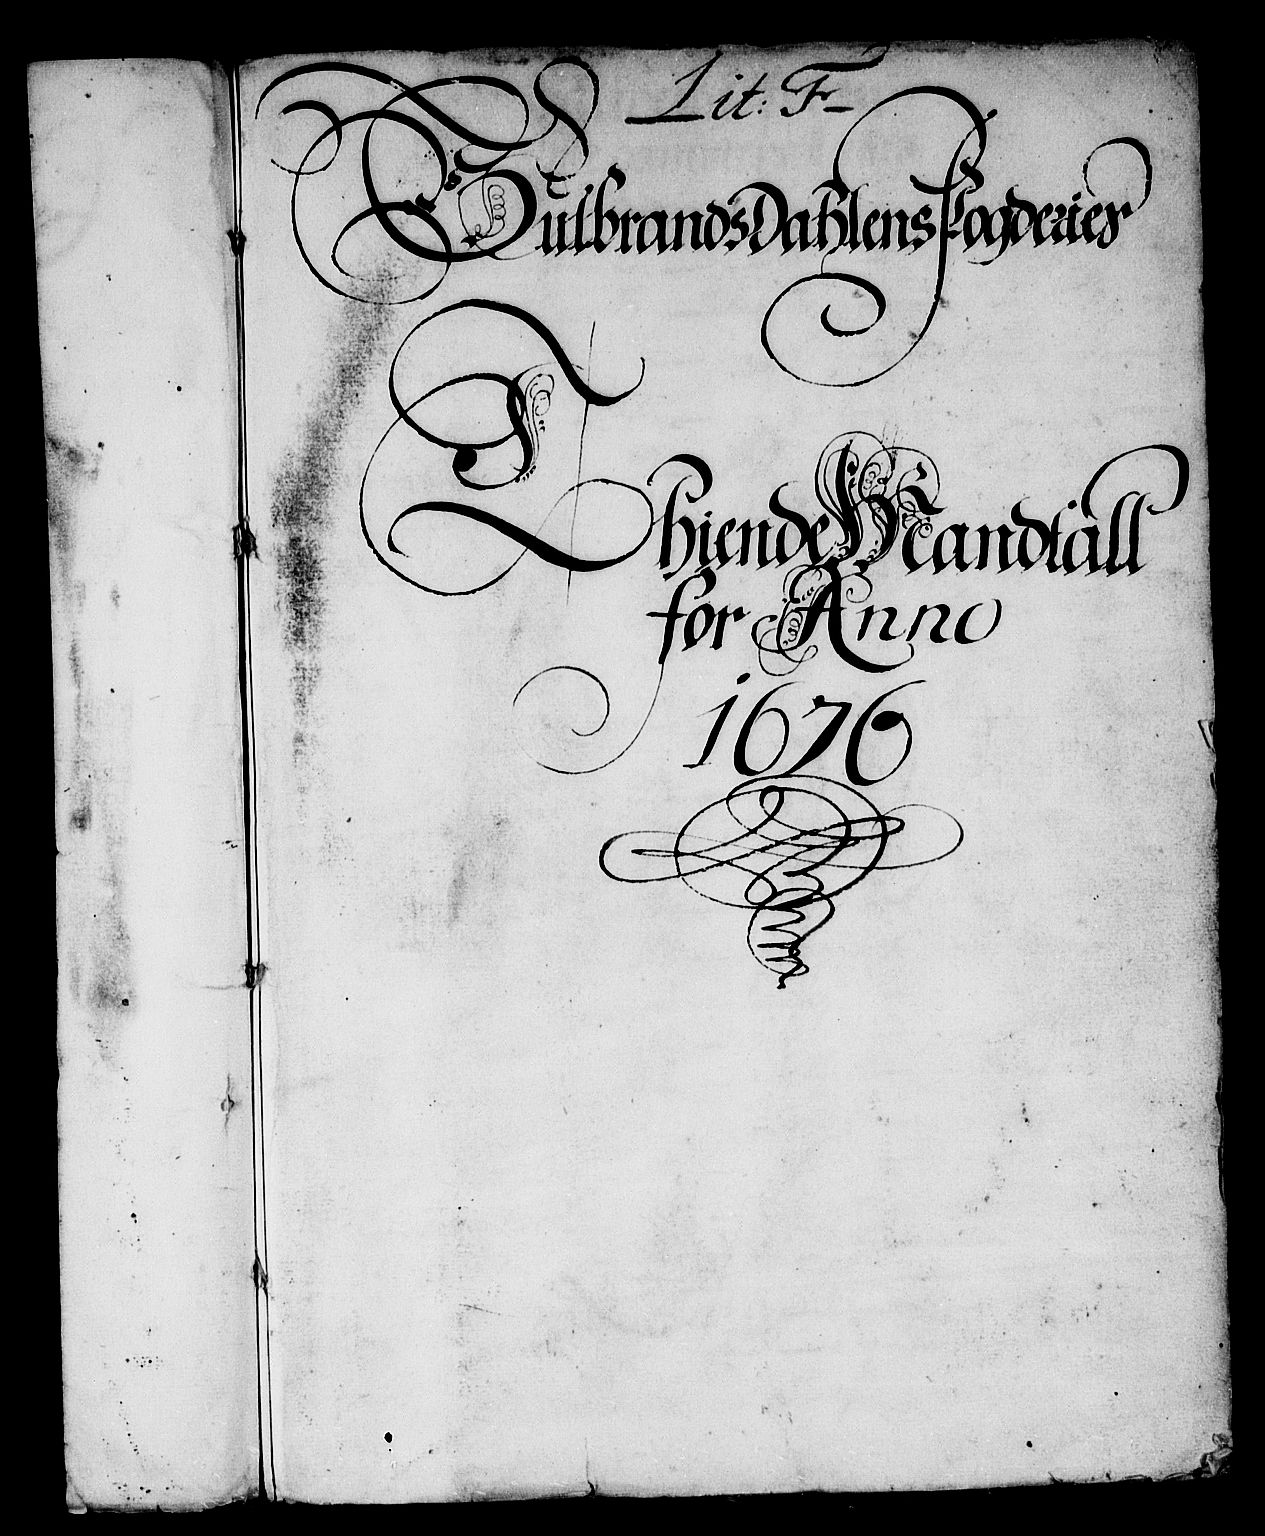 Lit: F-
Gulbrands Dahlens fogderies
Thiende Mandtall
for Anno
1676